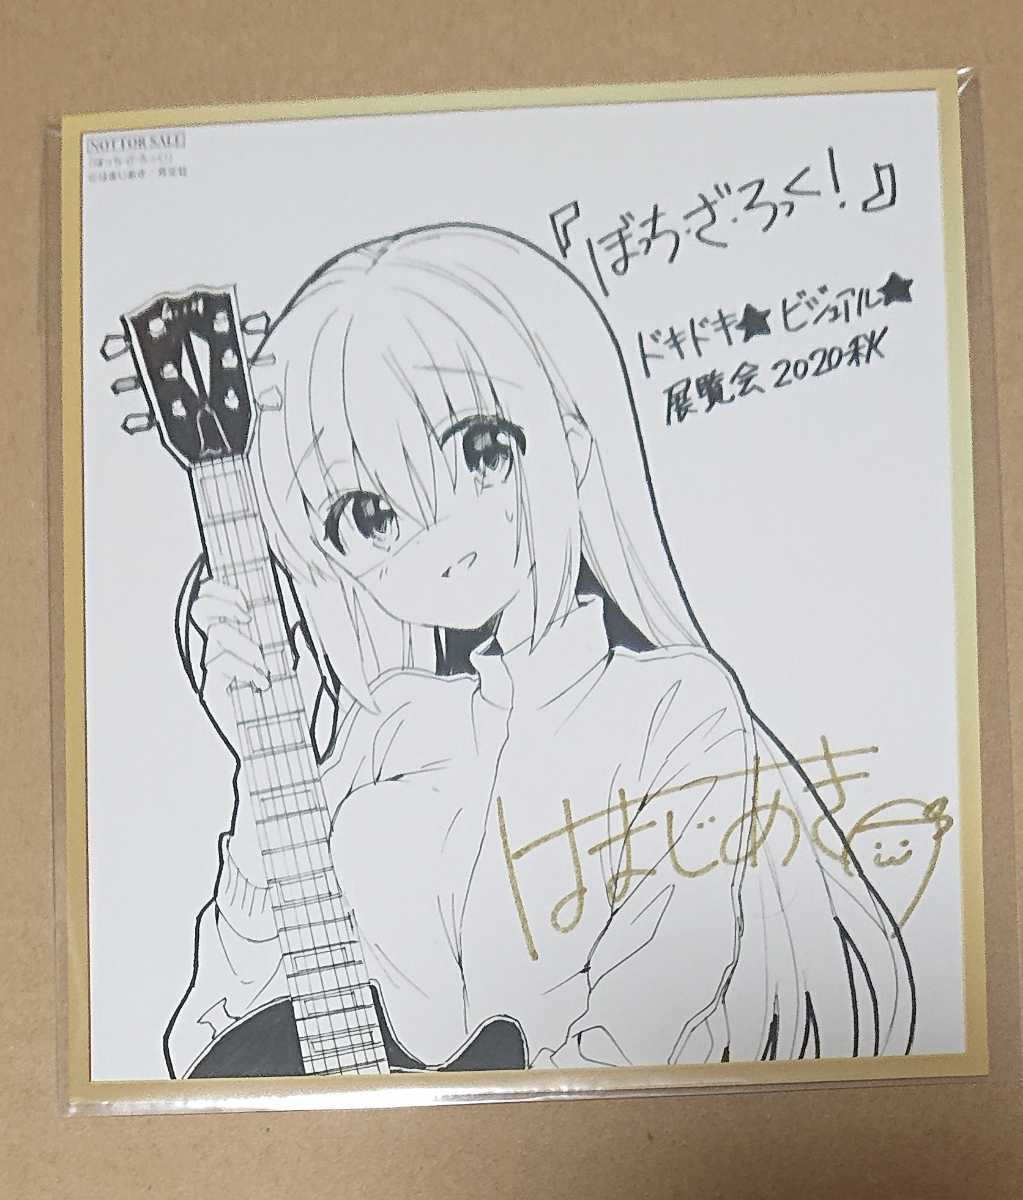 NOT FOR SALE
「ぼっち・ざ・ろっく!」
©はまじあき/芳文社
『ぼっち・ざ・ろっく!』
ドキドキ★ビジュアル★
展覧会2020秋
はまじあき